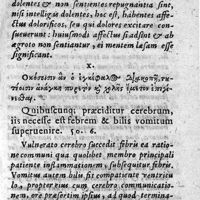 dolentes & non sentientes repugnantia sint,
nisi intelligas dolentes, hoc est, habentes affe-
ctus dolorificos, seu qui dolores excitare con-
sueuerunt: huiusmodi affectus si adsint & ab
ægroto non sentiantur, ei mentem læsam esse
significant.
X.
πυρετὸν καὶ χολῆς ἔμετον
Quibuscunq; præciditur cerebrum,
iis necesse est febrem & bilis vomitum
superuenire. 50. 6.
Vulnerato cerebro succedit febris ea ratio-
ne communi qua quolibet membro principali
patiente inflammationem, subsequitur febris.
Vomitus autem bilis fit compatiente ventricu-
lo, propter eius cum cerebro communicatio-
nem, ore præsertim ipsius, ad quod termina-